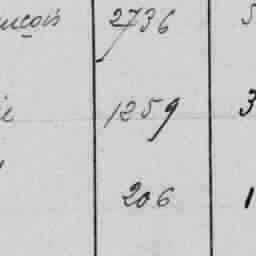 nçois 2736 5
ie 1259 3
206 1